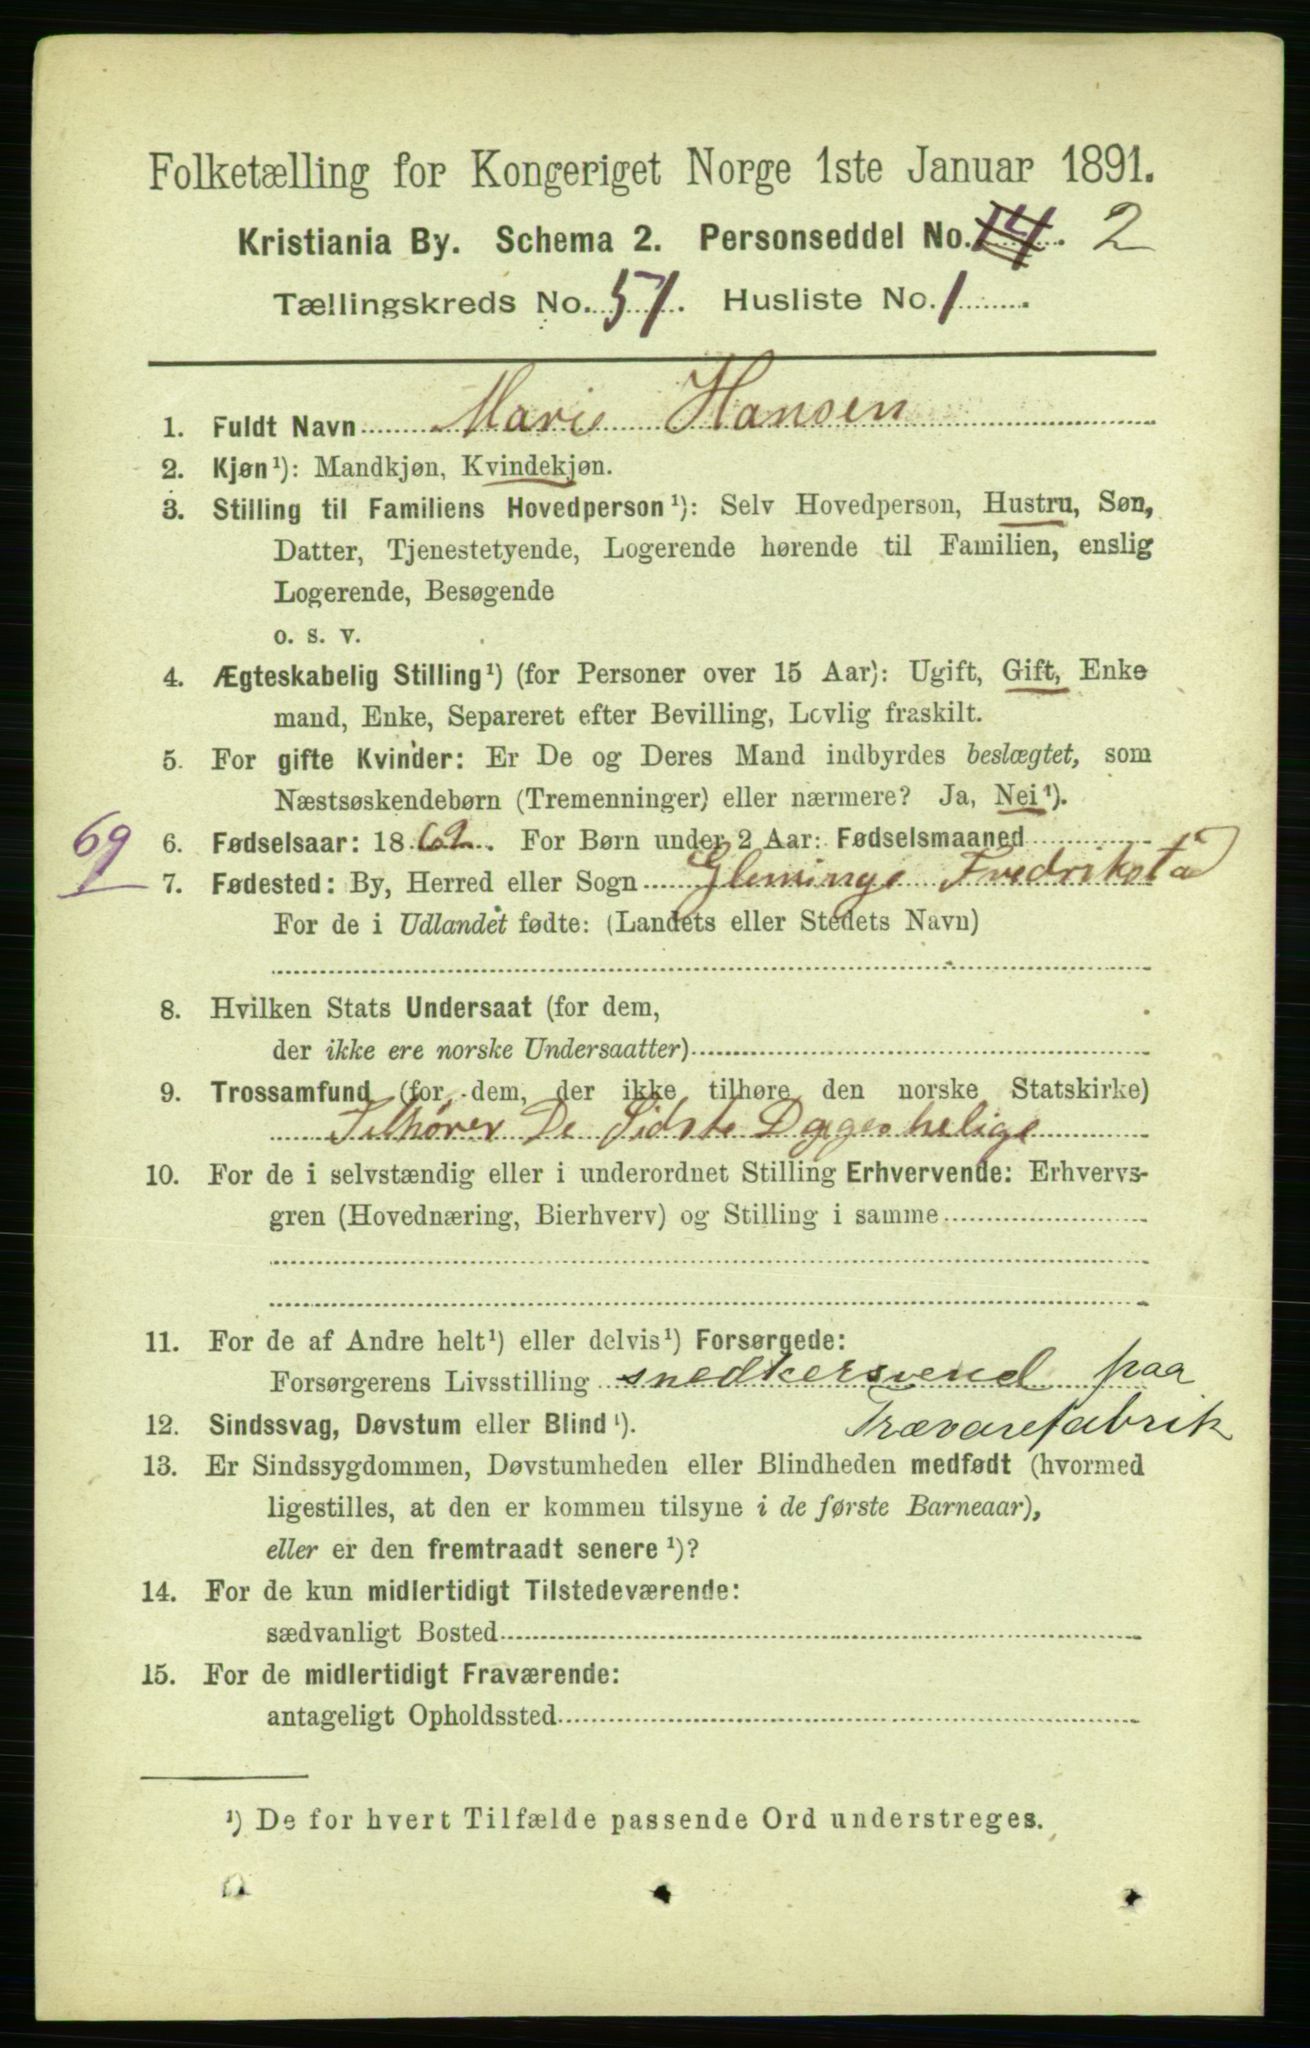 Folketælling for Kongeriget Norge 1ste Januar 1891.
Kristiania By. Schema 2. Personseddel No. 14. 2
Tællingskreds No. 51. Husliste No. 1
1. Fuldt Navn Marie Hansen
2. Kjøn¹): Mandkjøn, Kvindekjøn.
3. Stilling til Familiens Hovedperson¹): Selv Hovedperson, Hustru, Søn,
Datter, Tjenestetyende, Logerende hørende til Familien, enslig
Logerende, Besøgende
o. s. v.
4. Ægteskabelig Stilling¹) (for Personer over 15 Aar): Ugift, Gift, Enke
mand, Enke, Separeret efter Bevilling, Lovlig fraskilt.
5. For gifte Kvinder: Er De og Deres Mand indbyrdes beslægtet, som
Næstsøskendebørn (Tremenninger) eller nærmere? Ja, Nei¹).
69
6. Fødselsaar: 1862. For Børn under 2 Aar: Fødselsmaaned
7. Fødested: By, Herred eller Sogn Gleminge Fredrikstad
For de i Udlandet fødte: (Landets eller Stedets Navn)
8. Hvilken Stats Undersaat (for dem,
der ikke ere norske Undersaatter)
9. Trossamfund (for dem, der ikke tilhøre den norske Statskirke)
Tilhører De Sidste Dages helige
10. For de i selvstændig eller i underordnet Stilling Erhvervende: Erhvervs-
gren (Hovednæring, Bierhverv) og Stilling i samme
11. For de af Andre helt¹) eller delvis¹) Forsørgede:
Forsørgerens Livsstilling snedkersvend paa
Trævarefabrik
12. Sindssvag, Døvstum eller Blind¹).
13. Er Sindssygdommen, Døvstumheden eller Blindheden medfødt (hvormed
ligestilles, at den er kommen tilsyne i de første Barneaar),
eller er den fremtraadt senere¹)?
14. For de kun midlertidigt Tilstedeværende:
sædvanligt Bosted
15. For de midlertidigt Fraværende:
antageligt Opholdssted
¹) De for hvert Tilfælde passende Ord understreges.